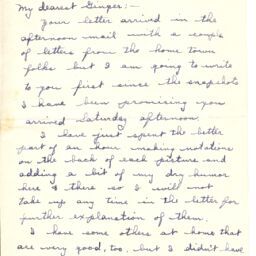 My dearest Ginger:-
Your letter arrived in the
afternoon mail with a couple
of letters from the home town
folks but I am going to write
to you first since the snapshots
I have been promising you
arrived Saturday afternoon.
I have just spent the better
part of an hour making notations
on the back of each picture and
adding a bit of my dry humor
here & there so I will not
take up any time in the letter for
further explanation of them.
I have some others at home that
are very good, too, but I didn't have